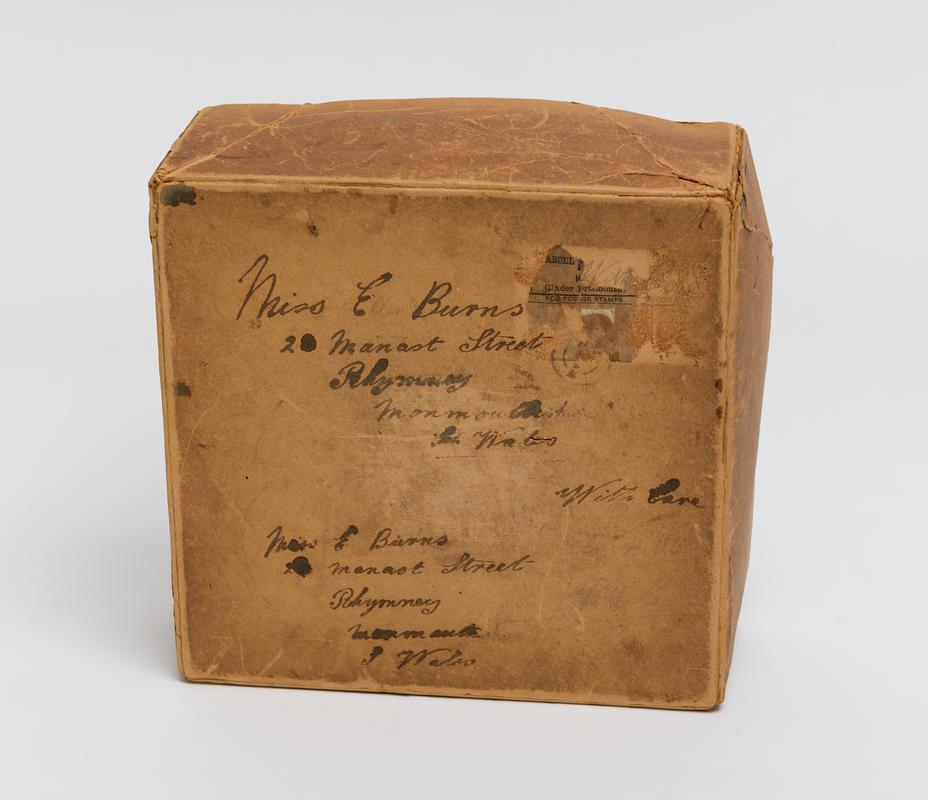 Miss E Burns
Manast Street
Rhymney
Monmouthshire
S. Wales
ARCEL
(Under Portsmouth)
FOR POSTAGE STAMPS
With Care
Miss E Burns
Manast Street
Rhymney
Monmouth
S Wales